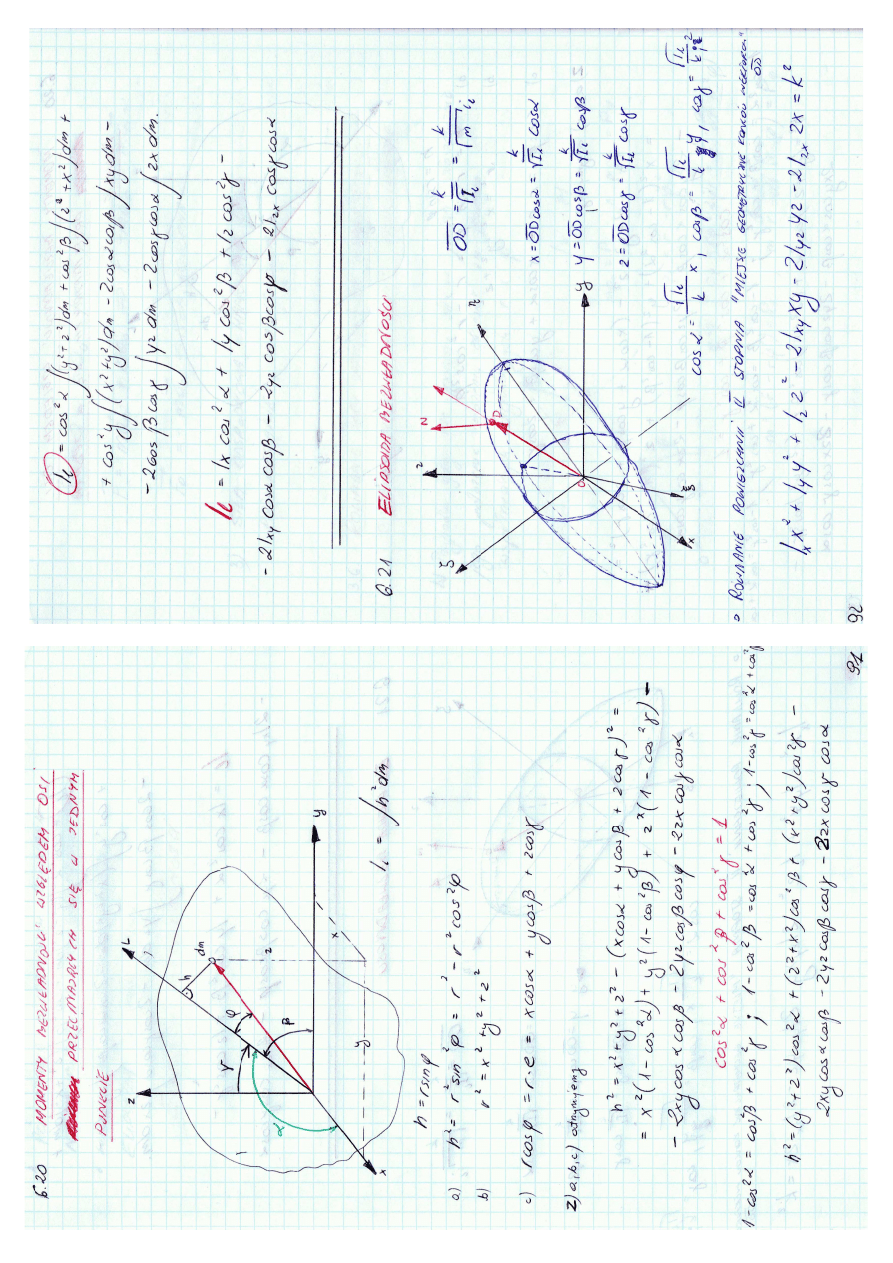 6.20 MOMENTY BEZWŁADNOŚCI WZGLĘDEM OSI
PRZECINAJĄCYCH SIĘ W JEDNYM
PUNKCIE
z
L
dm
h
r
φ
γ
β
α
z
x
y
x
y
l
I_l = ∫h²dm
h = r sinφ
a) h² = r² sin²φ = r² - r² cos²φ
b) r² = x² + y² + z²
c) r cosφ = r·e = x cosα + y cosβ + z cosγ
Z) a, b, c) otrzymujemy
h² = x² + y² + z² - (x cosα + y cosβ + z cosγ)² =
= x²(1 - cos²α) + y²(1 - cos²β) + z²(1 - cos²γ) -
- 2xy cosα cosβ - 2yz cosβ cosφ - 2zx cosγ cosα
cos²α + cos²β + cos²γ = 1
1-cos²α = cos²β + cos²γ ; 1-cos²β = cos²α + cos²γ ; 1-cos²γ = cos²α + cos²β
h² = (y²+z²) cos²α + (z²+x²) cos²β + (x²+y²) cos²γ -
2xy cosα cosβ - 2yz cosβ cosγ - 2zx cosγ cosα
91
I_l = cos²α ∫(y²+z²)dm + cos²β ∫(z²+x²)dm +
+ cos²γ ∫(x²+y²)dm - 2cosα cosβ ∫xy dm -
- 2cosβ cosγ ∫yz dm - 2cosγ cosα ∫zx dm.
I_l = Ix cos²α + Iy cos²β + Iz cos²γ -
- 2Ixy cosα cosβ - 2yz cosβ cosφ - 2Izx cosγ cosα
6.21 ELIPSOIDA BEZWŁADNOŚCI
ζ
z
N
D
η
O
y
x
ξ
OD = k/√I_l = k/(√m i_l)
x = OD cosα = k/√I_l cosα
y = OD cosβ = k/√I_l cosβ
z = OD cosγ = k/√I_l cosγ
cosα = √I_l/k x, cosβ = √I_l/k y, cosγ = √I_l/k z
° RÓWNANIE POWIERZCHNI II STOPNIA "MIEJSCE GEOMETRYCZNE KOŃCÓW ODCINKA" OD
I_x x² + I_y y² + I_z z² - 2I_xy xy - 2I_yz yz - 2I_zx zx = k²
92